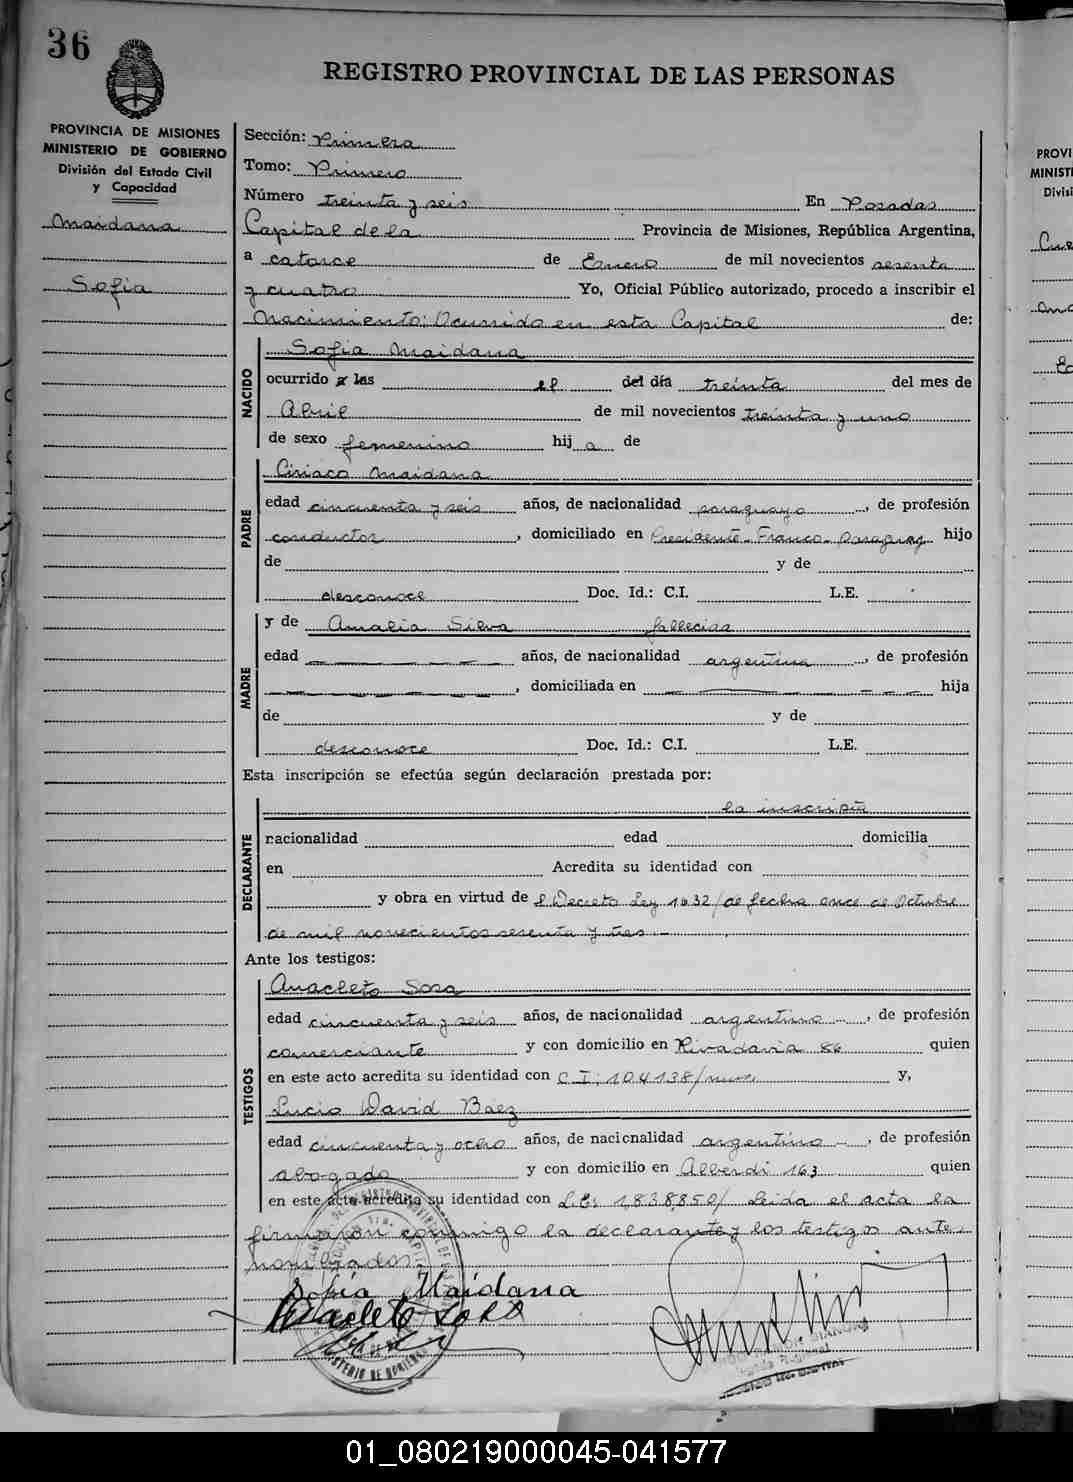 36
REGISTRO PROVINCIAL DE LAS PERSONAS
PROVINCIA DE MISIONES
MINISTERIO DE GOBIERNO
División del Estado Civil
y Capacidad
Maidana
Sofia
Sección: Primera
Tomo: Primero
Número treinta y seis En Posadas
Capital de la Provincia de Misiones, República Argentina,
a catorce de Enero de mil novecientos sesenta
y cuatro Yo, Oficial Público autorizado, procedo a inscribir el
Nacimiento: Ocurrido en esta Capital de:
NACIDO
Sofia Maidana
ocurrido a las el del día treinta del mes de
Abril de mil novecientos treinta y uno
de sexo femenino hij a de
PADRE
Ciriaco Maidana
edad cincuenta y seis años, de nacionalidad paraguayo, de profesión
conductor, domiciliado en Presidente Franco - Paraguay hijo
de y de
desconoce Doc. Id.: C.I. L.E.
MADRE
y de Amalia Silva fallecida
edad años, de nacionalidad argentina, de profesión
, domiciliada en hija
de y de
desconoce Doc. Id.: C.I. L.E.
Esta inscripción se efectúa según declaración prestada por:
DECLARANTE
la inscripta
nacionalidad edad domicilia
en Acredita su identidad con
y obra en virtud de l Decreto Ley 1632/ de fecha once de Octubre
de mil novecientos sesenta y tres.-
Ante los testigos:
TESTIGOS
Anacleto Sosa
edad cincuenta y seis años, de nacionalidad argentino, de profesión
comerciante y con domicilio en Rivadavia 86 quien
en este acto acredita su identidad con C.I: 104138/ y,
Lucio David Báez
edad cincuenta y ocho años, de nacionalidad argentino, de profesión
abogado y con domicilio en Alberdi 163 quien
en este acto acredita su identidad con L.E: 1.838.850/ Leida el acta la
firmaron conmigo la declarante y los testigos ante-
nombrados.
Sofía Maidana
Anacleto Sosa
MINISTERIO DE GOBIERNO
PROVI
MINIST
Divis
01_080219000045-041577